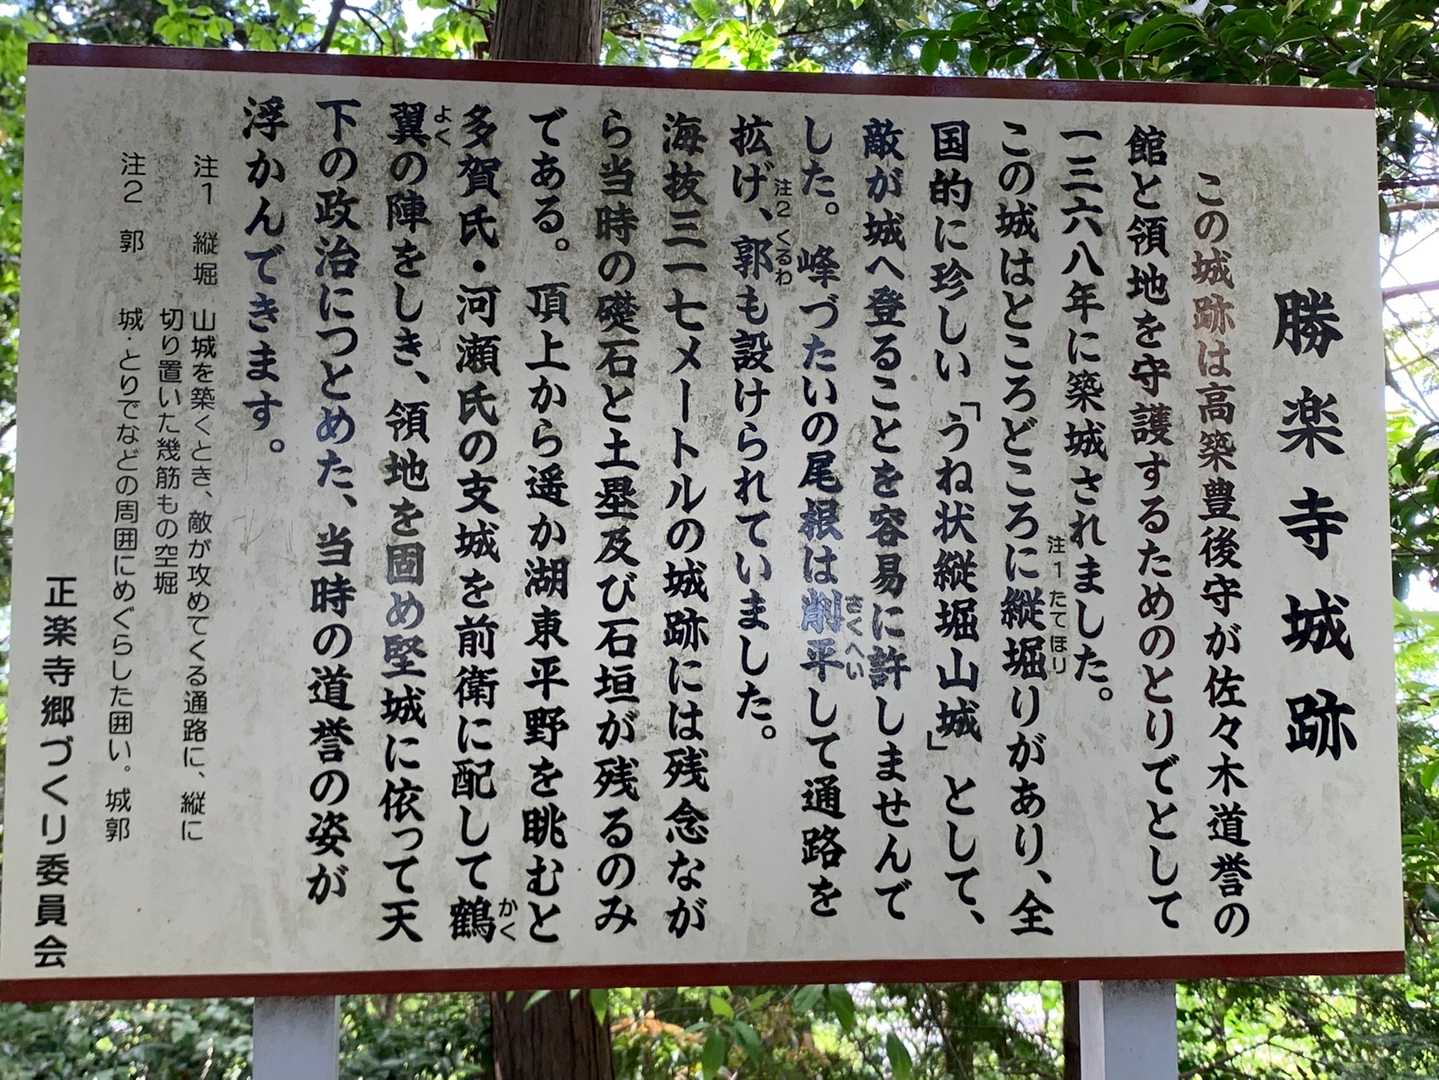 勝楽寺城跡
この城跡は高築豊後守が佐々木道誉の
館と領地を守護するためのとりでとして
一三六八年に築城されました。
この城はところどころに縦堀りがあり、全
注1たてほり
国的に珍しい「うね状縦堀山城」として、
敵が城へ登ることを容易に許しませんで
した。峰づたいの尾根は削平して通路を
さくへい
拡げ、郭も設けられていました。
注2くるわ
海抜三一七メートルの城跡には残念なが
ら当時の礎石と土塁及び石垣が残るのみ
である。頂上から遥か湖東平野を眺むと
多賀氏・河瀬氏の支城を前衛に配して鶴
かく
翼の陣をしき、領地を固め堅城に依って天
よく
下の政治につとめた、当時の道誉の姿が
浮かんできます。
注1 縦堀 山城を築くとき、敵が攻めてくる通路に、縦に
切り置いた幾筋もの空堀
注2 郭 城・とりでなどの周囲にめぐらした囲い。城郭
正楽寺郷づくり委員会